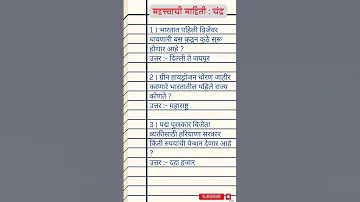 महत्त्वाची माहिती : चंद्र
1 ) भारतात पहिली विजेवर
धावणारी बस कुठून कुठे सुरू
होणार आहे ?
उत्तर :- दिल्ली ते जयपूर
2 ) ग्रीन हायड्रोजन धोरण जाहीर
करणारे भारतातील पहिले राज्य
कोणते ?
उत्तर :- महाराष्ट्र
3 ) पद्म पुरस्कार विजेता
व्यक्तीसाठी हरियाणा सरकार
किती रुपयांची पेन्शन देणार आहे
?
उत्तर :- दहा हजार
SUBSCRIBE